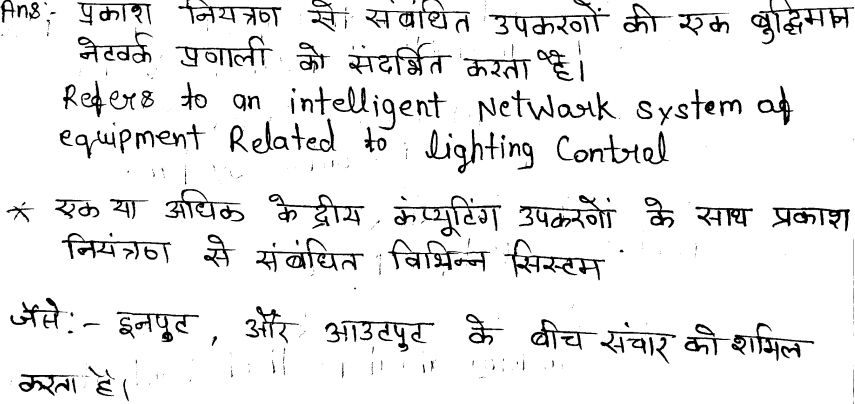 Ans:- प्रकाश नियत्रण से संबंधित उपकरणों की एक बुद्धिमान
नेटवर्क प्रणाली को संदर्भित करता है।
Refers to an intelligent NetWark system of
equipment Related to lighting Control
* एक या अधिक केन्द्रीय कंप्यूटिंग उपकरणों के साथ प्रकाश
नियंत्रण से संबंधित विभिन्न सिस्टम
जैसे:- इनपुट, और आउटपुट के बीच संचार को शामिल
करता है।